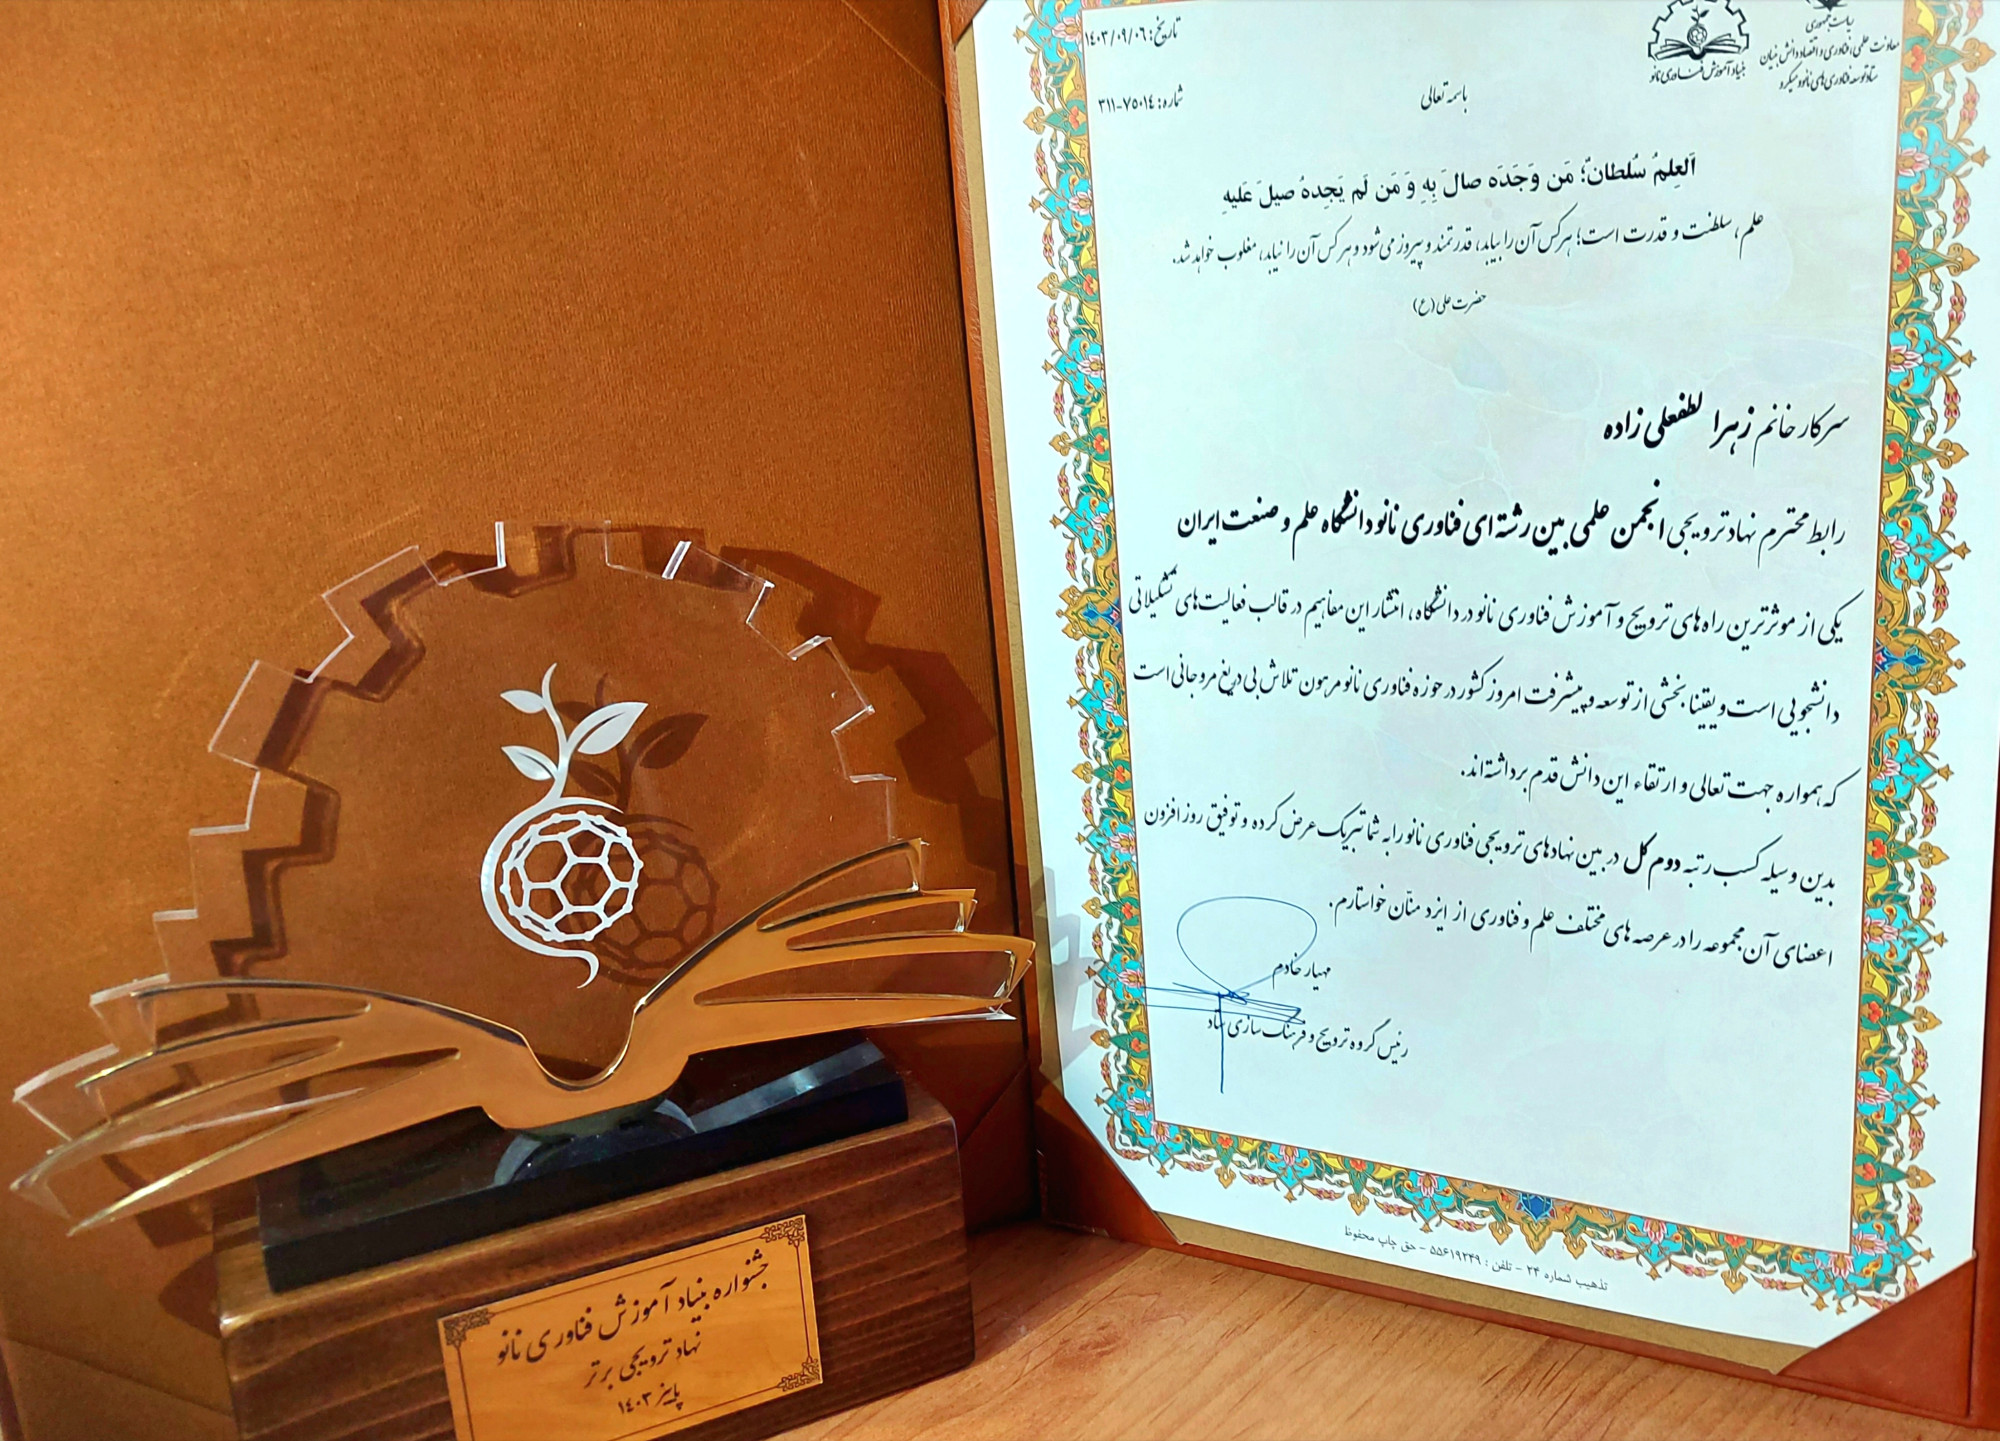 ریاست جمهوری
معاونت علمی، فناوری و اقتصاد دانش بنیان
ستاد توسعه فناوری‌های نانو و میکرو
بنیاد آموزش فناوری نانو
تاریخ: ۱۴۰۳/۰۹/۰۶
شماره: ۷۵۰۱۴-۳۱۱
باسمه تعالی
اَلعِلمُ سُلطانٌ؛ مَن وَجَدَه صالَ بِهِ وَ مَن لَم یَجِدهُ صیلَ عَلیهِ
علم، سلطنت و قدرت است؛ هر کس آن را بیابد، قدرتمند و پیروز می‌شود و هر کس آن را نیابد، مغلوب خواهد شد.
حضرت علی (ع)
سرکار خانم زهرا لطفعلی زاده
رابط محترم نهاد ترویجی انجمن علمی بین رشته ای فناوری نانو دانشگاه علم و صنعت ایران
یکی از موثرترین راه های ترویج و آموزش فناوری نانو در دانشگاه، انتشار این مفاهیم در قالب فعالیت‌های تشکیلاتی
دانشجویی است و یقینا بخشی از توسعه و پیشرفت امروز کشور در حوزه فناوری نانو مرهون تلاش بی دریغ مروجانی است
که همواره جهت تعالی و ارتقاء این دانش قدم برداشته‌اند.
بدین وسیله کسب رتبه دوم کل در بین نهادهای ترویجی فناوری نانو را به شما تبریک عرض کرده و توفیق روز افزون
اعضای آن مجموعه را در عرصه های مختلف علم و فناوری از ایزد منّان خواستارم.
مهیار خادم
رئیس گروه ترویج و فرهنگ سازی ستاد
تذهیب شماره ۲۴ - تلفن: ۵۵۶۱۹۲۴۹ - حق چاپ محفوظ
جشنواره بنیاد آموزش فناوری نانو
نهاد ترویجی برتر
پاییز ۱۴۰۳